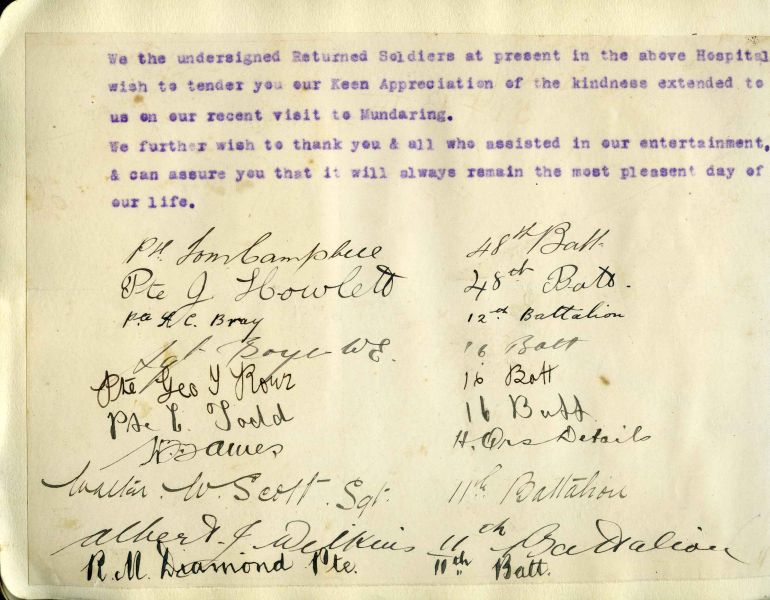 We the undersigned Returned Soldiers at present in the above Hospital
wish to tender you our Keen Appreciation of the kindness extended to
us on our recent visit to Mundaring.
We further wish to thank you & all who assisted in our entertainment,
& can assure you that it will always remain the most pleasent day of
our life.
Pte Tom Campbell 48th Batt
Pte J Howlett 48th Batt.
Pte C. Bray 12th Battalion
Sgt W.E. 16 Batt
Pte Geo 16 Batt
Pte Todd 16 Batt
H. Qrs Details
Walter. W. Scott. Sgt. 11th Battalion
Albert. J. Wilkins 11th Battalion
R. M. Diamond Pte. 11th Batt.